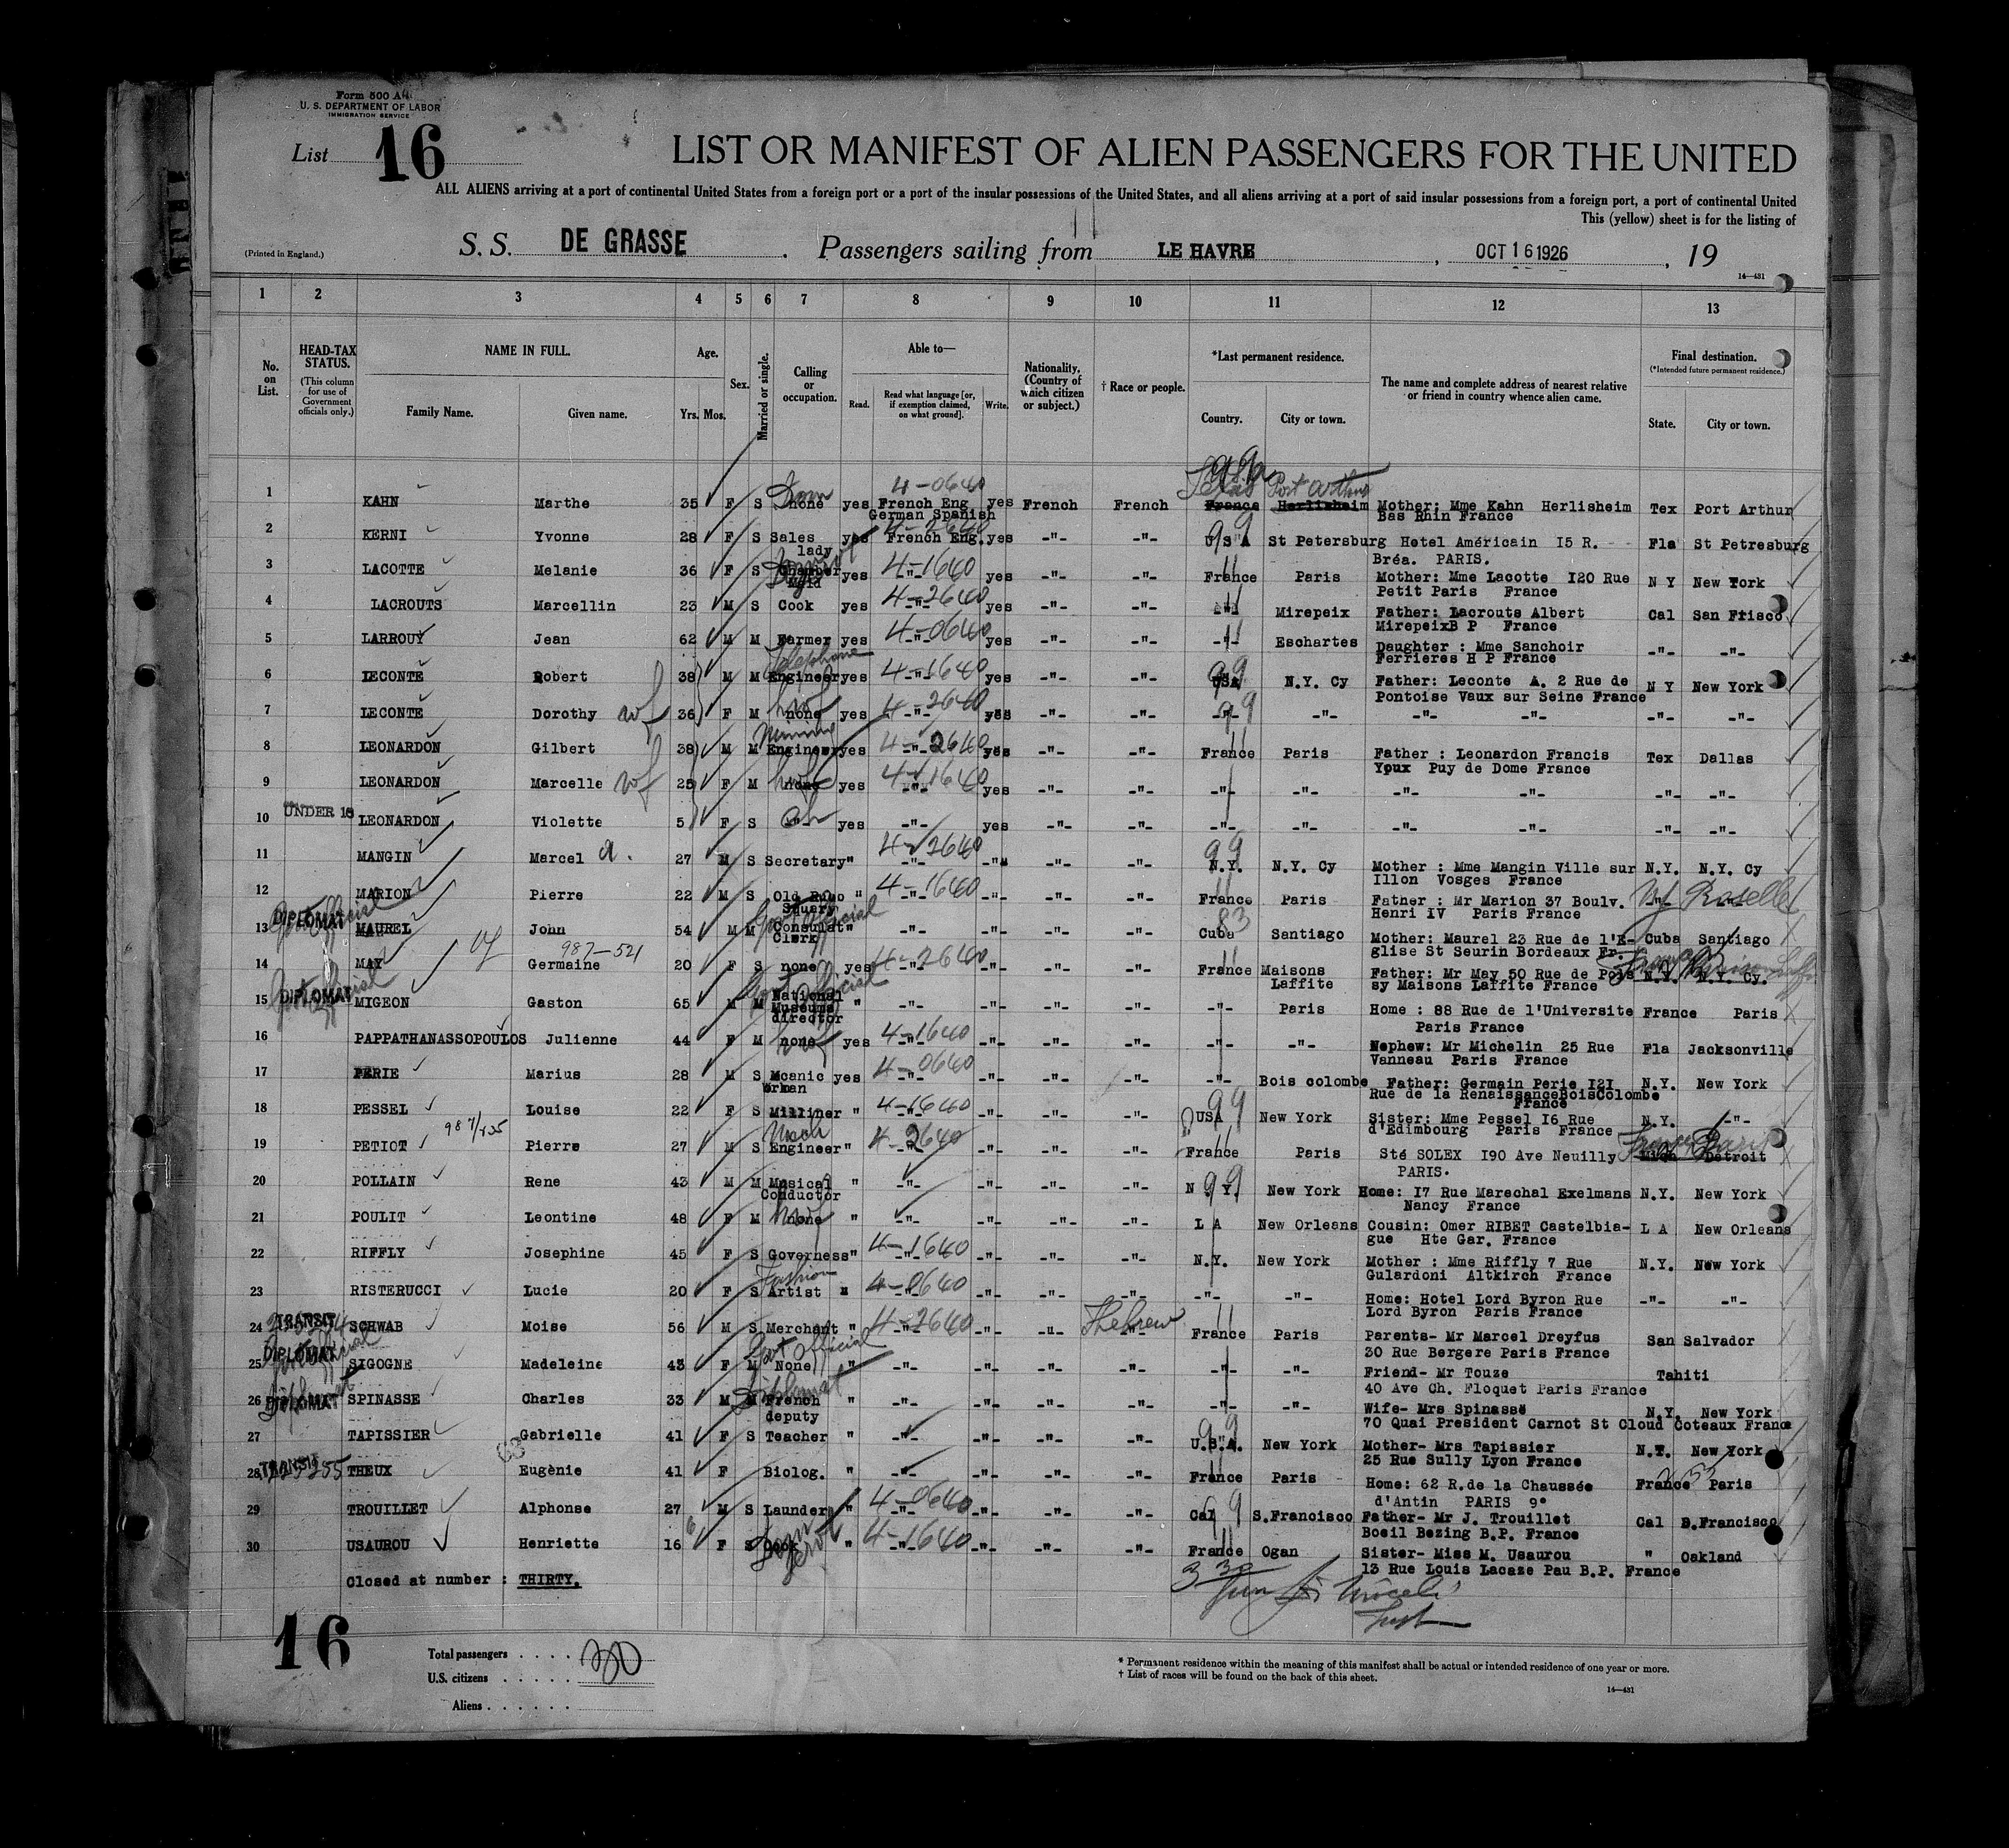 Form 500 A
U. S. DEPARTMENT OF LABOR
IMMIGRATION SERVICE
List 16
LIST OR MANIFEST OF ALIEN PASSENGERS FOR THE UNITED
ALL ALIENS arriving at a port of continental United States from a foreign port or a port of the insular possessions of the United States, and all aliens arriving at a port of said insular possessions from a foreign port, a port of continental United
This (yellow) sheet is for the listing of
(Printed in England.)
S. S. DE GRASSE. Passengers sailing from LE HAVRE, OCT 16 1926, 19
14—431
1 2 3 4 5 6 7 8 9 10 11 12 13
No. on List.
HEAD-TAX STATUS.
(This column for use of Government officials only.)
NAME IN FULL.
Family Name. Given name.
Age.
Yrs. Mos.
Sex.
Married or single.
Calling or occupation.
Able to—
Read. Read what language [or, if exemption claimed, on what ground]. Write.
Nationality. (Country of which citizen or subject.)
† Race or people.
*Last permanent residence.
Country. City or town.
The name and complete address of nearest relative or friend in country whence alien came.
Final destination.
(*Intended future permanent residence.)
State. City or town.
4-0640 Texas Port Arthur
1 KAHN Marthe 35 F S none yes French Eng yes French French France Herlisheim Mother: Mme Kahn Herlisheim Tex Port Arthur
German Spanish Bas Rhin France
2 KERNI Yvonne 28 F S Sales yes French Eng. yes -"- -"- U S A St Petersburg Hotel Américain 15 R. Fla St Petresburg
lady Bréa. PARIS.
3 LACOTTE Melanie 36 F S Chamber yes 4-1640 -"- yes -"- -"- France Paris Mother: Mme Lacotte 120 Rue N Y New York
Maid Petit Paris France
4 LACROUTS Marcellin 23 M S Cook yes 4-2640 -"- yes -"- -"- -"- Mirepeix Father: Lacrouts Albert Cal San Frisco
MirepeixB P France
5 LARROUY Jean 62 M M Farmer yes 4-0640 -"- yes -"- -"- -"- Eschartes Daughter : Mme Sanchoir -"- -"-
Ferrieres H P France
Telephone
6 LECONTE Robert 38 M M Engineer yes 4-1640 -"- yes -"- -"- USA N.Y. Cy Father: Leconte A. 2 Rue de N Y New York
Pontoise Vaux sur Seine France
7 LECONTE Dorothy wf 36 F M none yes 4-2640 -"- yes -"- -"- -"- -"- -"- -"- -"- -"-
8 LEONARDON Gilbert 38 M M Engineer yes 4-2640 -"- yes -"- -"- France Paris Father : Leonardon Francis Tex Dallas
Youx Puy de Dome France
9 LEONARDON Marcelle wf 25 F M none yes 4-1640 -"- yes -"- -"- -"- -"- -"- -"- -"- -"-
10 UNDER 16 LEONARDON Violette 5 F S ch yes -"- yes -"- -"- -"- -"- -"- -"- -"- -"-
11 MANGIN Marcel a. 27 M S Secretary " 4-2640 -"- -"- -"- -"- N.Y. N.Y. Cy Mother : Mme Mangin Ville sur N.Y. N.Y. Cy
Illon Vosges France
12 MARION Pierre 22 M S " 4-1640 -"- -"- -"- -"- France Paris Father : Mr Marion 37 Boulv.
Henri IV Paris France
13 DIPLOMAT Govt Official MAUREL John 54 M M Consulat " -"- -"- -"- -"- Cuba Santiago Mother: Maurel 23 Rue de l'E- Cuba Santiago
Clerk glise St Seurin Bordeaux Fr.
987-521
14 MAY Germaine 20 F S none yes 4-2640 -"- -"- -"- -"- France Maisons Laffite Father: Mr May 50 Rue de Pois N.Y. N.Y. Cy.
sy Maisons Laffite France
15 DIPLOMAT Govt Official MIGEON Gaston 65 M M National " -"- -"- -"- -"- -"- Paris Home : 88 Rue de l'Universite France Paris
Museums director Paris France
16 PAPPATHANASSOPOULOS Julienne 44 F M none yes 4-1640 -"- -"- -"- -"- -"- -"- Nephew: Mr Michelin 25 Rue Fla Jacksonville
Vanneau Paris France
17 PERIE Marius 28 M S Mcanic yes 4-0640 -"- -"- -"- -"- -"- Bois colombe Father: Germain Perie 121 N.Y. New York
Wrkan Rue de la RenaissanceBoisColombe France
18 PESSEL Louise 22 F S Milliner " 4-1640 -"- -"- -"- -"- USA New York Sister: Mme Pessel 16 Rue N.Y. -"-
d'Edimbourg Paris France
19 PETIOT Pierre 27 M S Engineer " 4-2640 -"- -"- -"- -"- France Paris Sté SOLEX 190 Ave Neuilly Mich Detroit
PARIS. France Paris
20 POLLAIN Rene 43 M M Musical " -"- -"- -"- -"- N.Y. New York Home: 17 Rue Marechal Exelmans N.Y. New York
Conductor Nancy France
21 POULIT Leontine 48 F M none " -"- -"- -"- -"- L A New Orleans Cousin: Omer RIBET Castelbia- L A New Orleans
gue Hte Gar. France
22 RIFFLY Josephine 45 F S Governess " 4-1640 -"- -"- -"- -"- N.Y. New York Mother : Mme Riffly 7 Rue N.Y. New York
Gulardoni Altkirch France
Fashion
23 RISTERUCCI Lucie 20 F S Artist " 4-0640 -"- -"- -"- -"- -"- -"- Home: Hotel Lord Byron Rue -"- -"-
Lord Byron Paris France
24 TRANSIT SCHWAB Moise 56 M S Merchant " 4-2640 -"- -"- -"- Hebrew France Paris Parents- Mr Marcel Dreyfus San Salvador
30 Rue Bergere Paris France
25 DIPLOMAT Govt Official SIGOGNE Madeleine 43 F M None " -"- -"- -"- -"- -"- -"- Friend- Mr Touze Tahiti
40 Ave Ch. Floquet Paris France
26 DIPLOMAT Diplomat SPINASSE Charles 33 M M French " -"- -"- -"- -"- -"- -"- Wife- Mrs Spinasse N.Y. New York
deputy 70 Quai President Carnot St Cloud Coteaux France
27 TAPISSIER Gabrielle 41 F S Teacher " -"- -"- -"- -"- U.S.A. New York Mother- Mrs Tapissier N.Y. New York
25 Rue Sully Lyon France
28 TRANSIT THEUX Eugènie 41 F Biolog. " -"- -"- -"- -"- France Paris Home: 62 R.de la Chaussée France Paris
d'Antin PARIS 9°
29 TROUILLET Alphonse 27 M S Launder " 4-0640 -"- -"- -"- -"- Cal S.Francisco Father- Mr J. Trouillet Cal S.Francisco
Boeil Bezing B.P. France
30 USAUROU Henriette 16 F S Cook " 4-1640 -"- -"- -"- -"- France Ogan Sister- Miss M. Usaurou " Oakland
13 Rue Louis Lacaze Pau B.P. France
Closed at number : THIRTY.
16
Total passengers 30
U.S. citizens
Aliens
* Permanent residence within the meaning of this manifest shall be actual or intended residence of one year or more.
† List of races will be found on the back of this sheet.
14—431